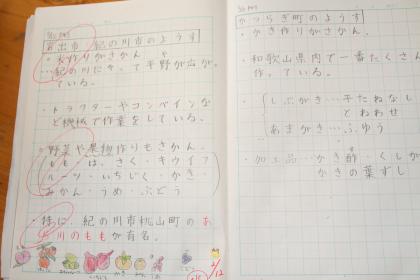 出市 紀の川市のようす
・米作りがさかん
紀の川にそって平野が広がっ
ている。
・トラクターやコンバインな
ど機械で作業をしている。
・野菜や果物作りもさかん。
もも・はっさく・キウイフ
ルーツ・いちじく・かき・
みかん・うめ・ぶどう
・特に、紀の川市桃山町のあ
川のももが有名。
かつらぎ町のようす
・かき作りがさかん。
・和歌山県内で一番たくさん
作っている。
しぶがき…平たねなし
とねわせ
あまがき…ふゆう
・加工品…かき酢・くしが
かきの葉ずし